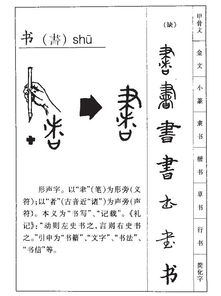 书（書）shū
形声字。以“聿”（笔）为形旁（义
符）；以“者”（古音近“诸”）为声旁（声
符）。本义为“书写”、“记载”。《礼
记》：“动则左史书之，言则右史书
之。”引申为“书籍”、“文字”、“书法”、
“书信”等。
（缺）
書
書
書
書
书
书
书
甲骨文
金文
小篆
隶书
楷书
草书
行书
简化字